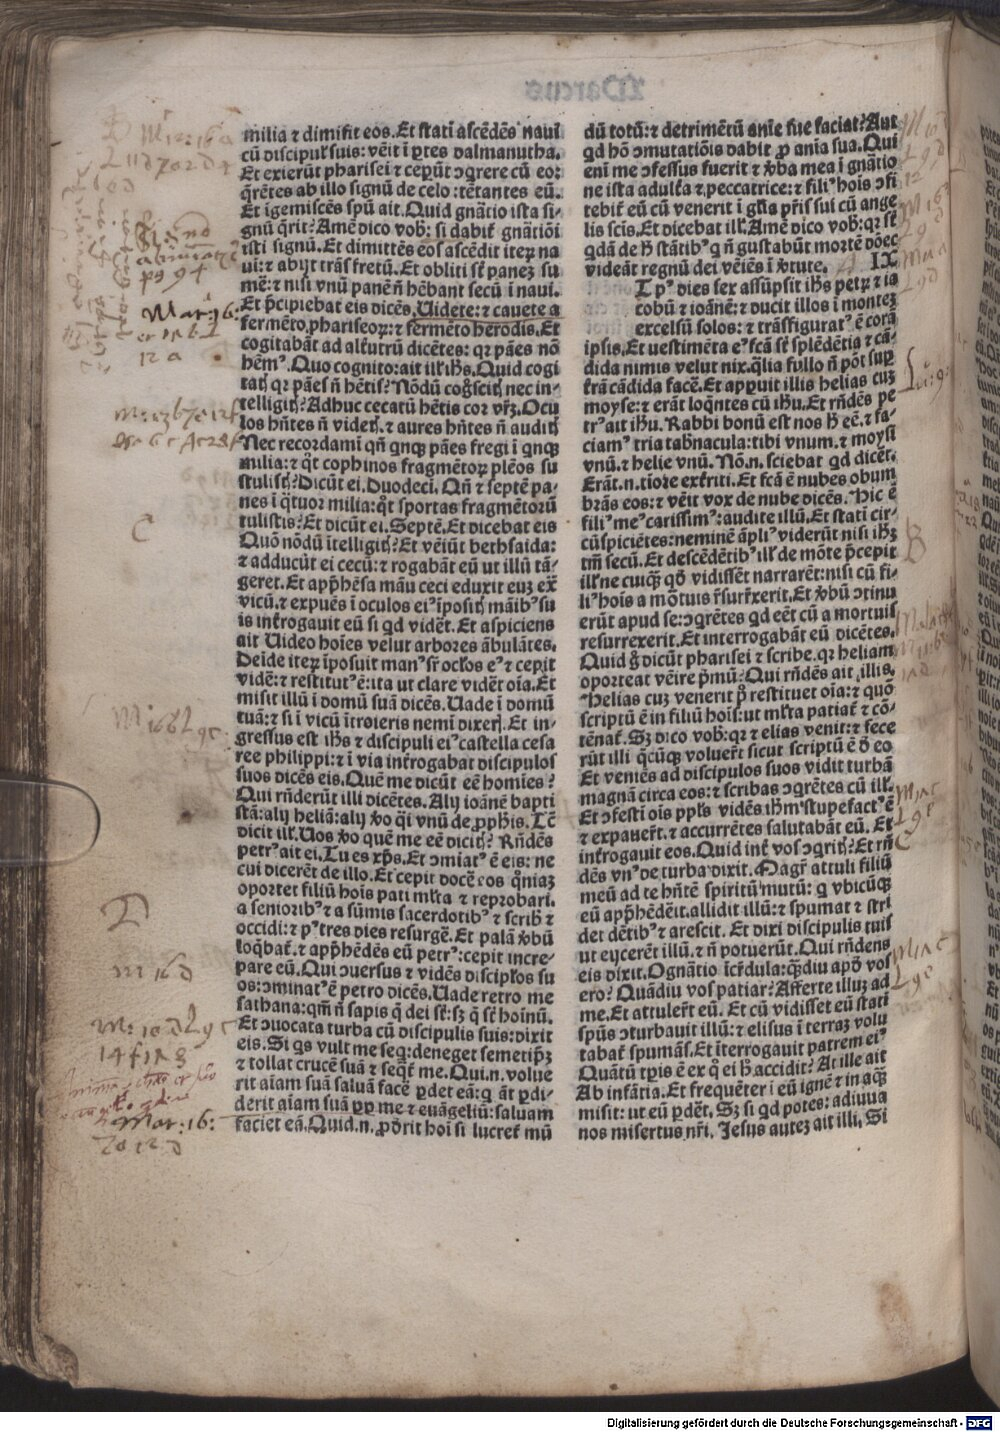 milia ⁊ dimiſit eos. Et ſtatī aſcēdēs nauī
cū diſcipulꝭ ſuis: vēit ī ꝑtes dalmanutha.
Et exierūt phariſei ⁊ ceꝑūt ꝯq̄rere cū eo:
q̄rētes ab illo ſignū de celo: tētantes eū.
Et īgemiſcēs ſpū ait. Quid gnātio iſta ſi-
gnū q̄rit? Amē dico vob: ſi dabit̉ gnātiōi
iſti ſignū. Et dimittēs eos aſcēdit iteꝝ na
ui: ⁊ abijt trās fretū. Et obliti ſt̄ panez ſu
mē: ⁊ niſi vnū panē n̄ hēbant ſecū ī naui.
Et p̄cipiebat eis dicēs. Uidete: ⁊ cauete a
fermēto phariſeoꝝ: ⁊ fermēto herodis. Et
cogitabāt ad alt̉utrū dicētes: qꝛ pāes nō
hēmꝰ. Quo cognito: ait illꝭ ih̄s. Quid cogi
tatꝭ qꝛ pāeſ n̄ hētis? Nōdū cog̊ſcitꝭ nec in-
telligitꝭ? Adhuc cecatū hētis cor vr̄ꝫ. Ocu
los hn̄tes n̄ videtꝭ. ⁊ aures hn̄tes n̄ auditꝭ
Nec recordami qn̄ qnqꝫ pāes fregi ī qnqꝫ
milia: ⁊ q̊t cophinos fragmētoꝝ plēos ſu
ſtuliſtꝭ? Dicūt ei. Duodeci. Qn̄ ⁊ ſeptē pa-
nes ī q̈tuor milia: q̊t ſportas fragmētorū
tuliſtis? Et dicūt ei. Septē. Et dicebat eis
Quō nōdū ītelligitꝭ? Et vēiūt bethſaida:
⁊ adducūt ei cecū: ⁊ rogabāt eū ut illū tā-
geret. Et app̄hēſa māu ceci eduxit euꝫ ex̄
vicū. ⁊ expuēs ī oculos eiꝰ īpoſitꝭ māibꝰ ſu
is int̉rogauit eū ſi qd vidēt. Et aſpiciens
ait Uideo hoīes velut arbores ābulātes.
Deīde iteꝝ īpoſuit manꝰ ſꝑ oclōs eꝰ ⁊ cepit
vidē: ⁊ reſtitutꝰ ē: ita ut clare vidēt oīa. Et
miſit illū ī domū ſuā dicēs. Uade ī domū
tuā: ⁊ ſi ī vicū ītroieris nemī dixerꝭ. Et in-
greſſus eſt ih̄s ⁊ diſcipuli eiꝰ caſtella ceſa
ree philippi: ⁊ ī via int̉rogabat diſcipulos
ſuos dicēs eis. Quē me dicūt eē homīes?
Qui rn̄derūt illi dicētes. Alij ioānē bapti
ſtā: alij heliā: alij ꝟo q̄i vnū de ꝓphis. Tē
dicit illꝭ. Uos ꝟo quē me eē dicitꝭ? Rn̄dēs
petrꝰ ait ei. Tu es xp̄s. Et ꝯmiatꝰ ē eis: ne
cui dicerēt de illo. Et cepit docē eos qm̄iaꝫ
oportet filiū hoīs pati ml̄ta ⁊ reprobari.
a ſenioribꝰ ⁊ a ſūmis ſacerdotibꝰ ⁊ ſcribꝭ ⁊
occidi: ⁊ pꝰ tres dies reſurgē. Et palā ꝟbū
loq̄bat̉. ⁊ app̄hēdēs eū petrꝰ: cepit incre-
pare eū. Qui ꝯuerſus ⁊ vidēs diſciplōs ſu
os: ꝯminatꝰ ē petro dicēs. Uade retro me
ſathana: qm̄ n̄ ſapis q̄ dei ſt̄: ſꝫ q̄ ſt̄ hoīnū.
Et ꝯuocata turba cū diſcipulis ſuis: dixit
eis. Si qs vult me ſeq: deneget ſemetip̄ꝫ
⁊ tollat crucē ſuā ⁊ ſeqt̉ me. Qui. n. volue
rit aīam ſuā ſaluā facē ꝑdet eā: q̄ āt ꝑdi-
derit aīam ſuā ꝓꝑ me ⁊ euāgeliū: ſaluam
faciet eā. Quid. n. ꝓderit hoī ſi lucret̉ mū
dū totū: ⁊ detrimētū aīe ſue faciat? Aut
qd hō ꝯmutatiōis dabit ꝓ aīa ſua. Qui
enī me ꝯfeſſus fuerit ⁊ ꝟba mea ī gnātio
ne iſta adult̉a ⁊ peccatrice: ⁊ filiꝰ hoīs ꝯfi
tebit̉ eū cū venerit ī gl̄ia pr̄is ſui cū ange
lis ſcīs. Et dicebat illꝭ. Amē dico vob: qꝛ ſt̄
qdā de h̄ ſtātibꝰ q n̄ guſtabūt mortē dōec
videāt regnū dei vēiēs ī ꝟtute. IX
T pꝰ dies ſex aſſūpſit ih̄s petꝝ ⁊ ia
cobū ⁊ ioānē: ⁊ ducit illos ī montez
excelſū ſolos: ⁊ trāſfiguratꝰ ē corā
ipſis. Et ueſtimēta eꝰ fcā ſt̄ ſplēdētia ⁊ cā-
dida nimis velut nix. q̄lia fullo n̄ pōt ſuꝑ
t̉rā cādida facē. Et apꝑuit illis helias cuꝫ
moyſe: ⁊ erāt loq̄ntes cū ih̄u. Et rn̄dēs pe
trꝰ ait ih̄u. Rabbi bonū eſt nos h̄ eē. ⁊ fa-
ciamꝰ tria tabn̄acula: tibi vnum. ⁊ moyſi
vnū. ⁊ helie vnū. Nō. n. ſciebat qd dicēt.
Erāt. n. tiore ext̉riti. Et fcā ē nubes obum
brās eos: ⁊ vēit vox de nube dicēs. Hic ē
filiꝰ meꝰ cariſſimꝰ: audite illū. Et ſtatī cir-
cūſpiciētes: neminē āpliꝰ viderūt niſi ih̄ꝫ
tm̄ ſecū. Et deſcēdētibꝰ illꝭ de mōte p̄cepit
illꝭ ne cuiqꝫ q̄ vidiſſēt narrarēt: niſi cū fi-
liꝰ hoīs a mōtuis r̄ſurr̄xerit. Et ꝟbū ꝯtinu
erūt apud ſe: ꝯq̄rētes qd eēt cū a mortuis
reſurrexerit. Et interrogabāt eū dicētes.
Quid g̊ dicūt phariſei ⁊ ſcribe. qꝛ heliam
oporteat vēire p̄mū? Qui rn̄dēs ait illis.
Helias cuꝫ venerit p̄ reſtituet oīa: ⁊ quō
ſcriptū ē in filiū hoīs: ut ml̄ta patiat̉ ⁊ cō-
tēnat̉. Sꝫ dico vob: qꝛ ⁊ elias venit: ⁊ fece
rūt illi q̄cūqꝫ voluer̄t ſicut ſcriptū ē ð eo
Et veniēs ad diſcipulos ſuos vidit turbā
magnā circa eos: ⁊ ſcribas ꝯq̄rētes cū illꝭ.
Et ꝯfeſti ois ppl̄s vidēs ih̄m ſtupefactꝰ ē
⁊ expauer̄t. ⁊ accurrētes ſalutabāt eū. Et
int̉rogauit eos. Quid int̉ voſ ꝯqritꝭ? Et rn̄
dēs vnꝰ de turba dixit. Magr̄ attuli filiū
meū ad te hn̄tē ſpiritū mutū: q vbicūqꝫ
eū app̄hēdēit. allidit illū: ⁊ ſpumat ⁊ ſtri
det dētibꝰ ⁊ areſcit. Et dixi diſcipulis tuis
ut eijcerēt illū. ⁊ n̄ potuerūt. Qui rn̄dens
eis dixit. O gnātio īcr̄dula: q̄diu apð voſ
ero? Quādiu voſ patiar? Afferte illuꝫ ad
me. Et attuler̄t eū. Et cū vidiſſet eū ſtatī
ſpūs ꝯturbauit illū: ⁊ eliſus ī terraꝫ volu
tabat̉ ſpumāſ. Et īterrogauit patrem eiꝰ
Quātū tꝑis ē ex q̊ ei h̄ accidit? At ille ait
Ab infātia. Et frequēter ī eū ignē ⁊ in aq̄ꝫ
miſit: ut eū ꝑdēt. Sꝫ ſi qd potes: adiuua
nos miſertus nr̄i. Jeſus auteꝫ ait illi. Si
Mar: 16:
Digitalisierung gefördert durch die Deutsche Forschungsgemeinschaft - DFG